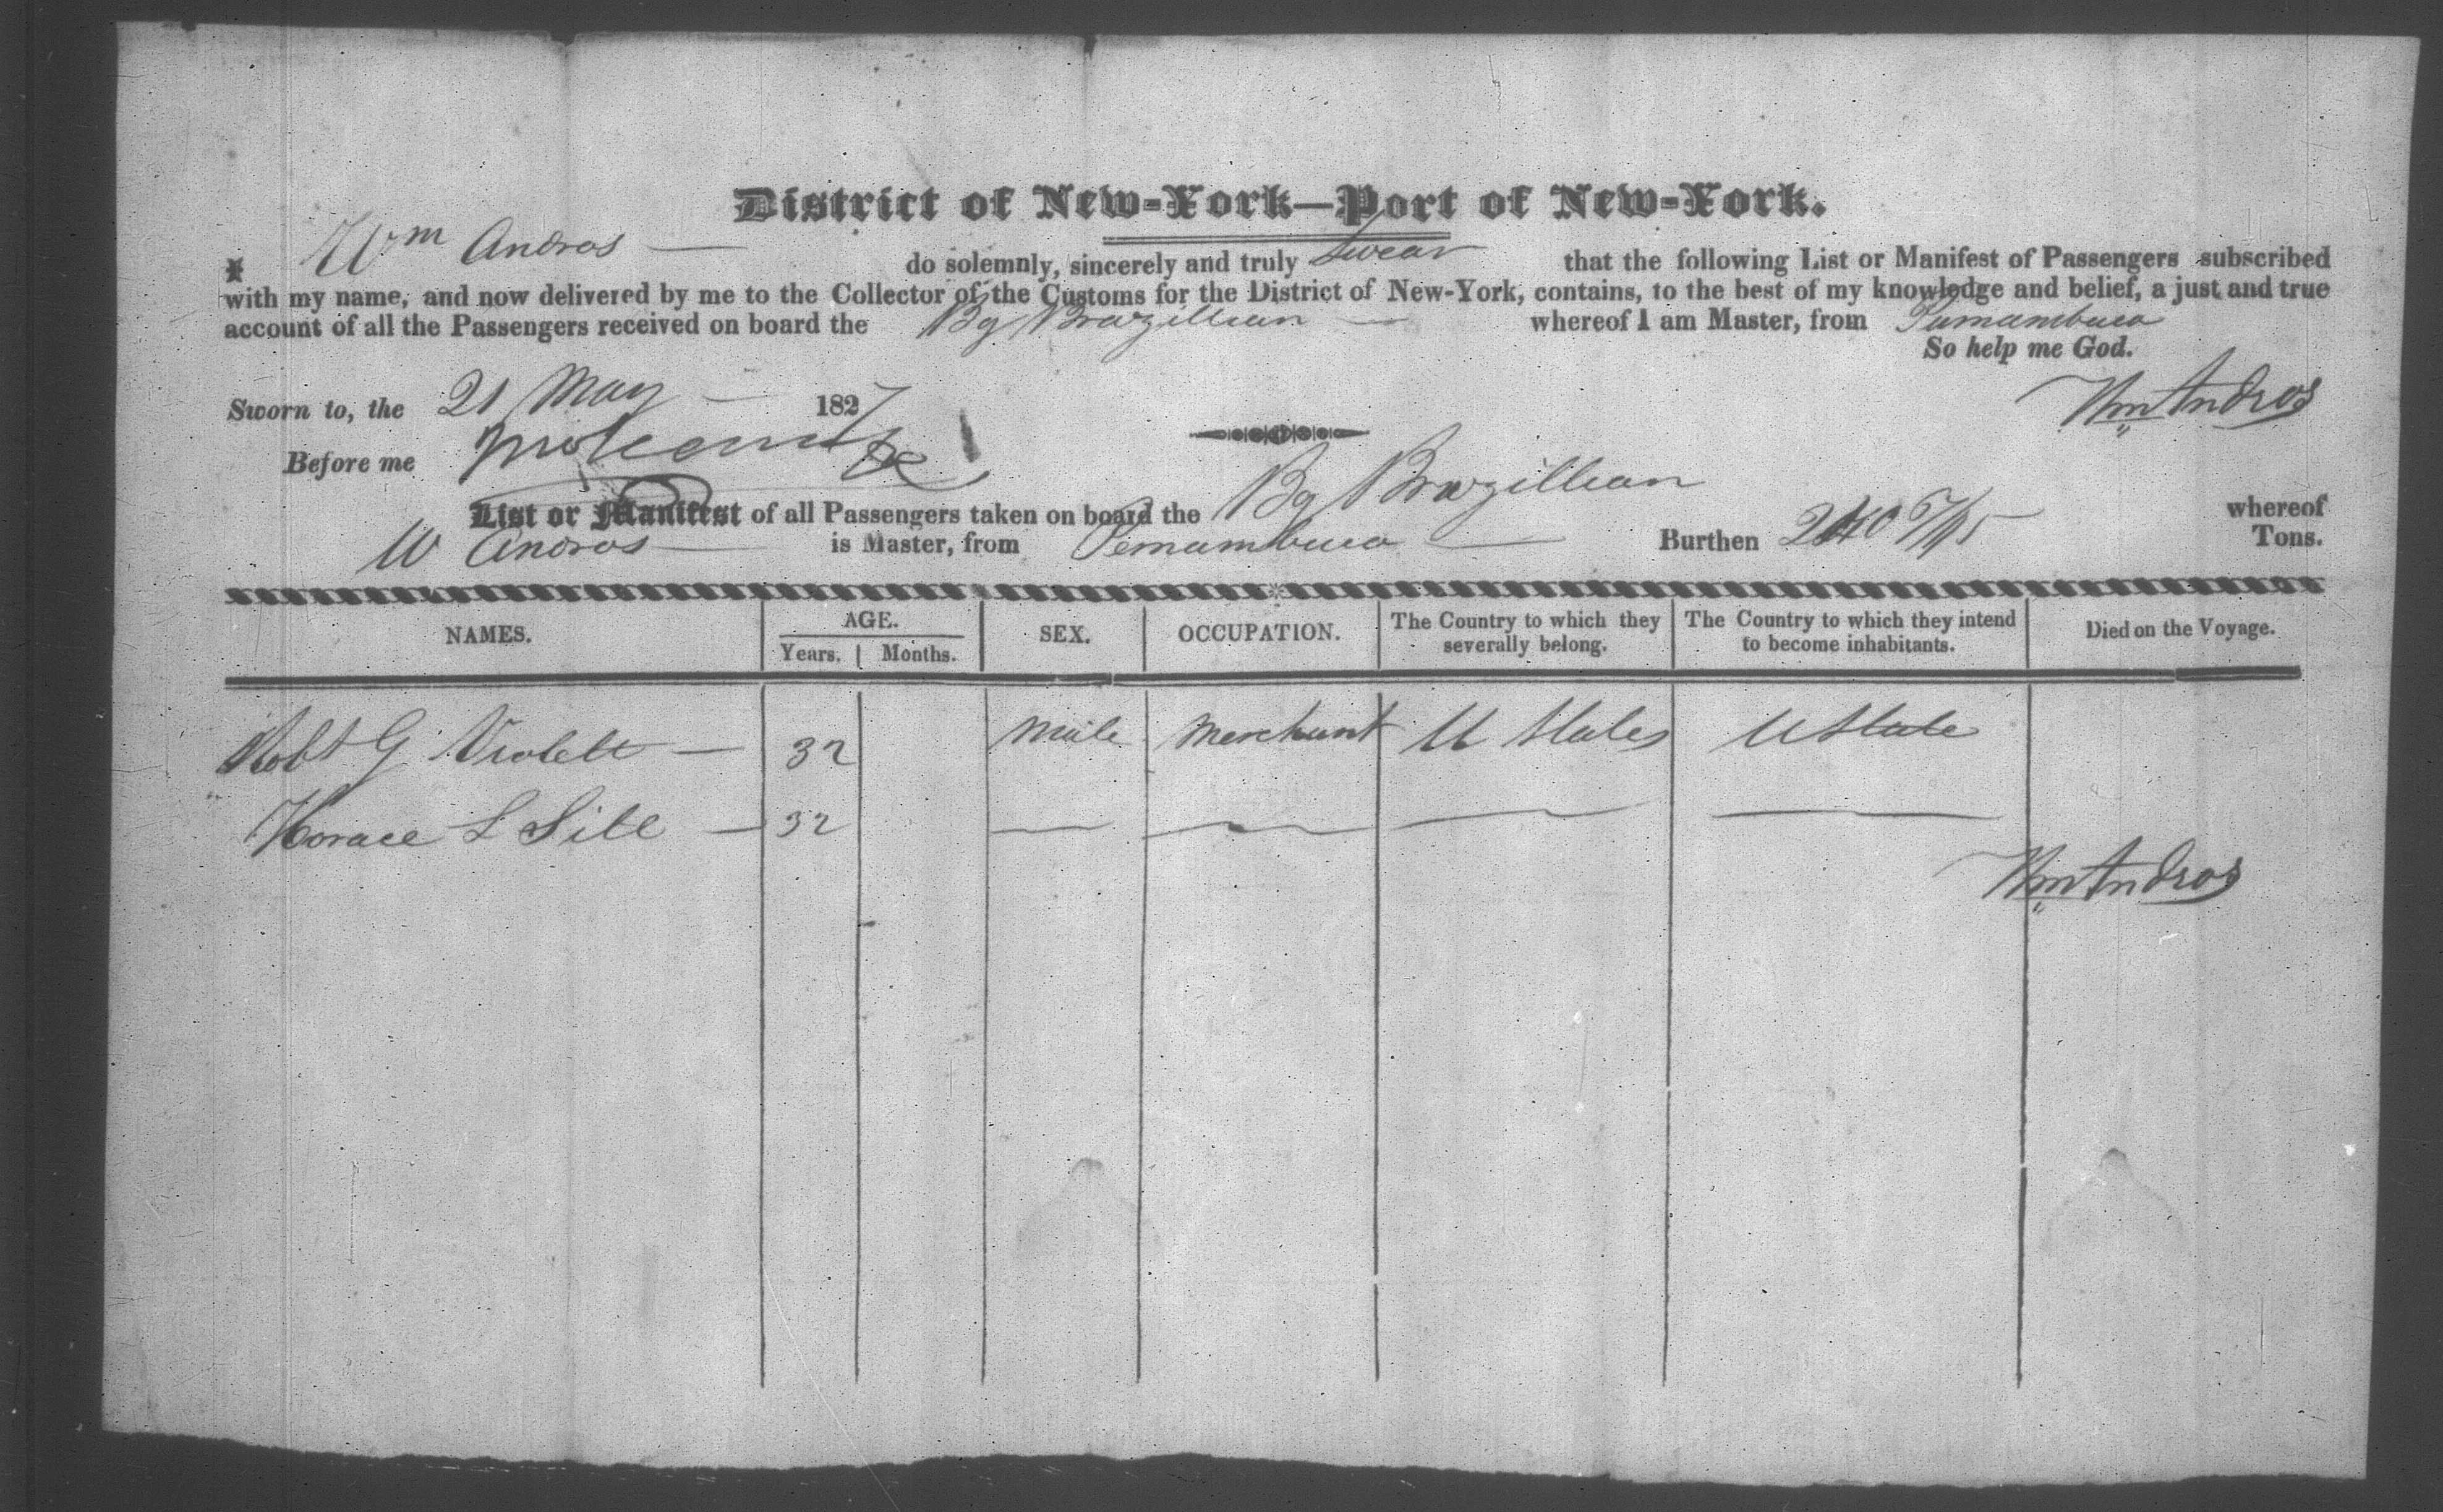 District of New-York—Port of New-York.
I Wm Andros — do solemnly, sincerely and truly swear that the following List or Manifest of Passengers subscribed
with my name, and now delivered by me to the Collector of the Customs for the District of New-York, contains, to the best of my knowledge and belief, a just and true
account of all the Passengers received on board the Bg Brazillian — whereof I am Master, from Pernambuco
So help me God.
Sworn to, the 21 May — 1827
Wm Andros
Before me
List or Manifest of all Passengers taken on board the Bg Brazillian whereof
W Andros — is Master, from Pernambuco — Burthen 240 Tons.
NAMES. AGE. SEX. OCCUPATION. The Country to which they severally belong. The Country to which they intend to become inhabitants. Died on the Voyage.
Years. Months.
Robt G Violett — 32 Male Merchant U States U State
Horace L Sill — 32 — — — —
Wm Andros